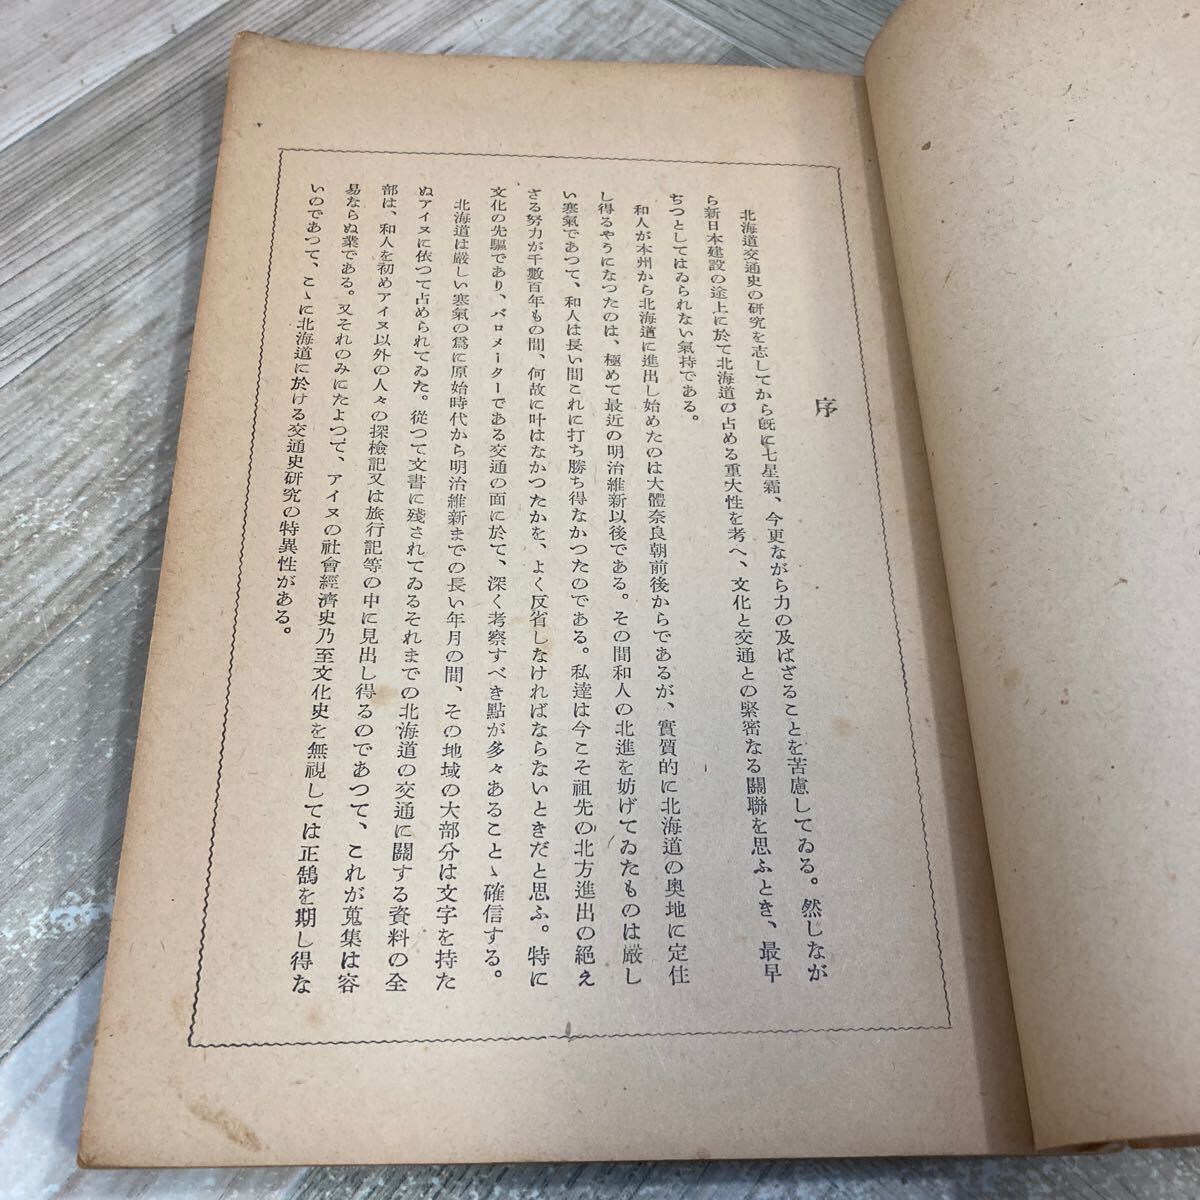 序
北海道交通史の研究を志してから旣に七星霜、今更ながら力の及ばざることを苦慮してゐる。然しなが
ら新日本建設の途上に於て北海道の占める重大性を考へ、文化と交通との緊密なる關聯を思ふとき、最早
ぢつとしてはゐられない氣持である。
和人が本州から北海道に進出し始めたのは大體奈良朝前後からであるが、實質的に北海道の奥地に定住
し得るやうになつたのは、極めて最近の明治維新以後である。その間和人の北進を妨げてゐたものは厳し
い寒氣であつて、和人は長い間これに打ち勝ち得なかつたのである。私達は今こそ祖先の北方進出の絶え
ざる努力が千數百年もの間、何故に叶はなかつたかを、よく反省しなければならないときだと思ふ。特に
文化の先驅であり、バロメーターである交通の面に於て、深く考察すべき點が多々あることゝ確信する。
北海道は厳しい寒氣の爲に原始時代から明治維新までの長い年月の間、その地域の大部分は文字を持た
ぬアイヌに依つて占められてゐた。從つて文書に残されてゐるそれまでの北海道の交通に關する資料の全
部は、和人を初めアイヌ以外の人々の探檢記又は旅行記等の中に見出し得るのであつて、これが蒐集は容
易ならぬ業である。又それのみにたよつて、アイヌの社會經濟史乃至文化史を無視しては正鵠を期し得な
いのであつて、こゝに北海道に於ける交通史研究の特異性がある。